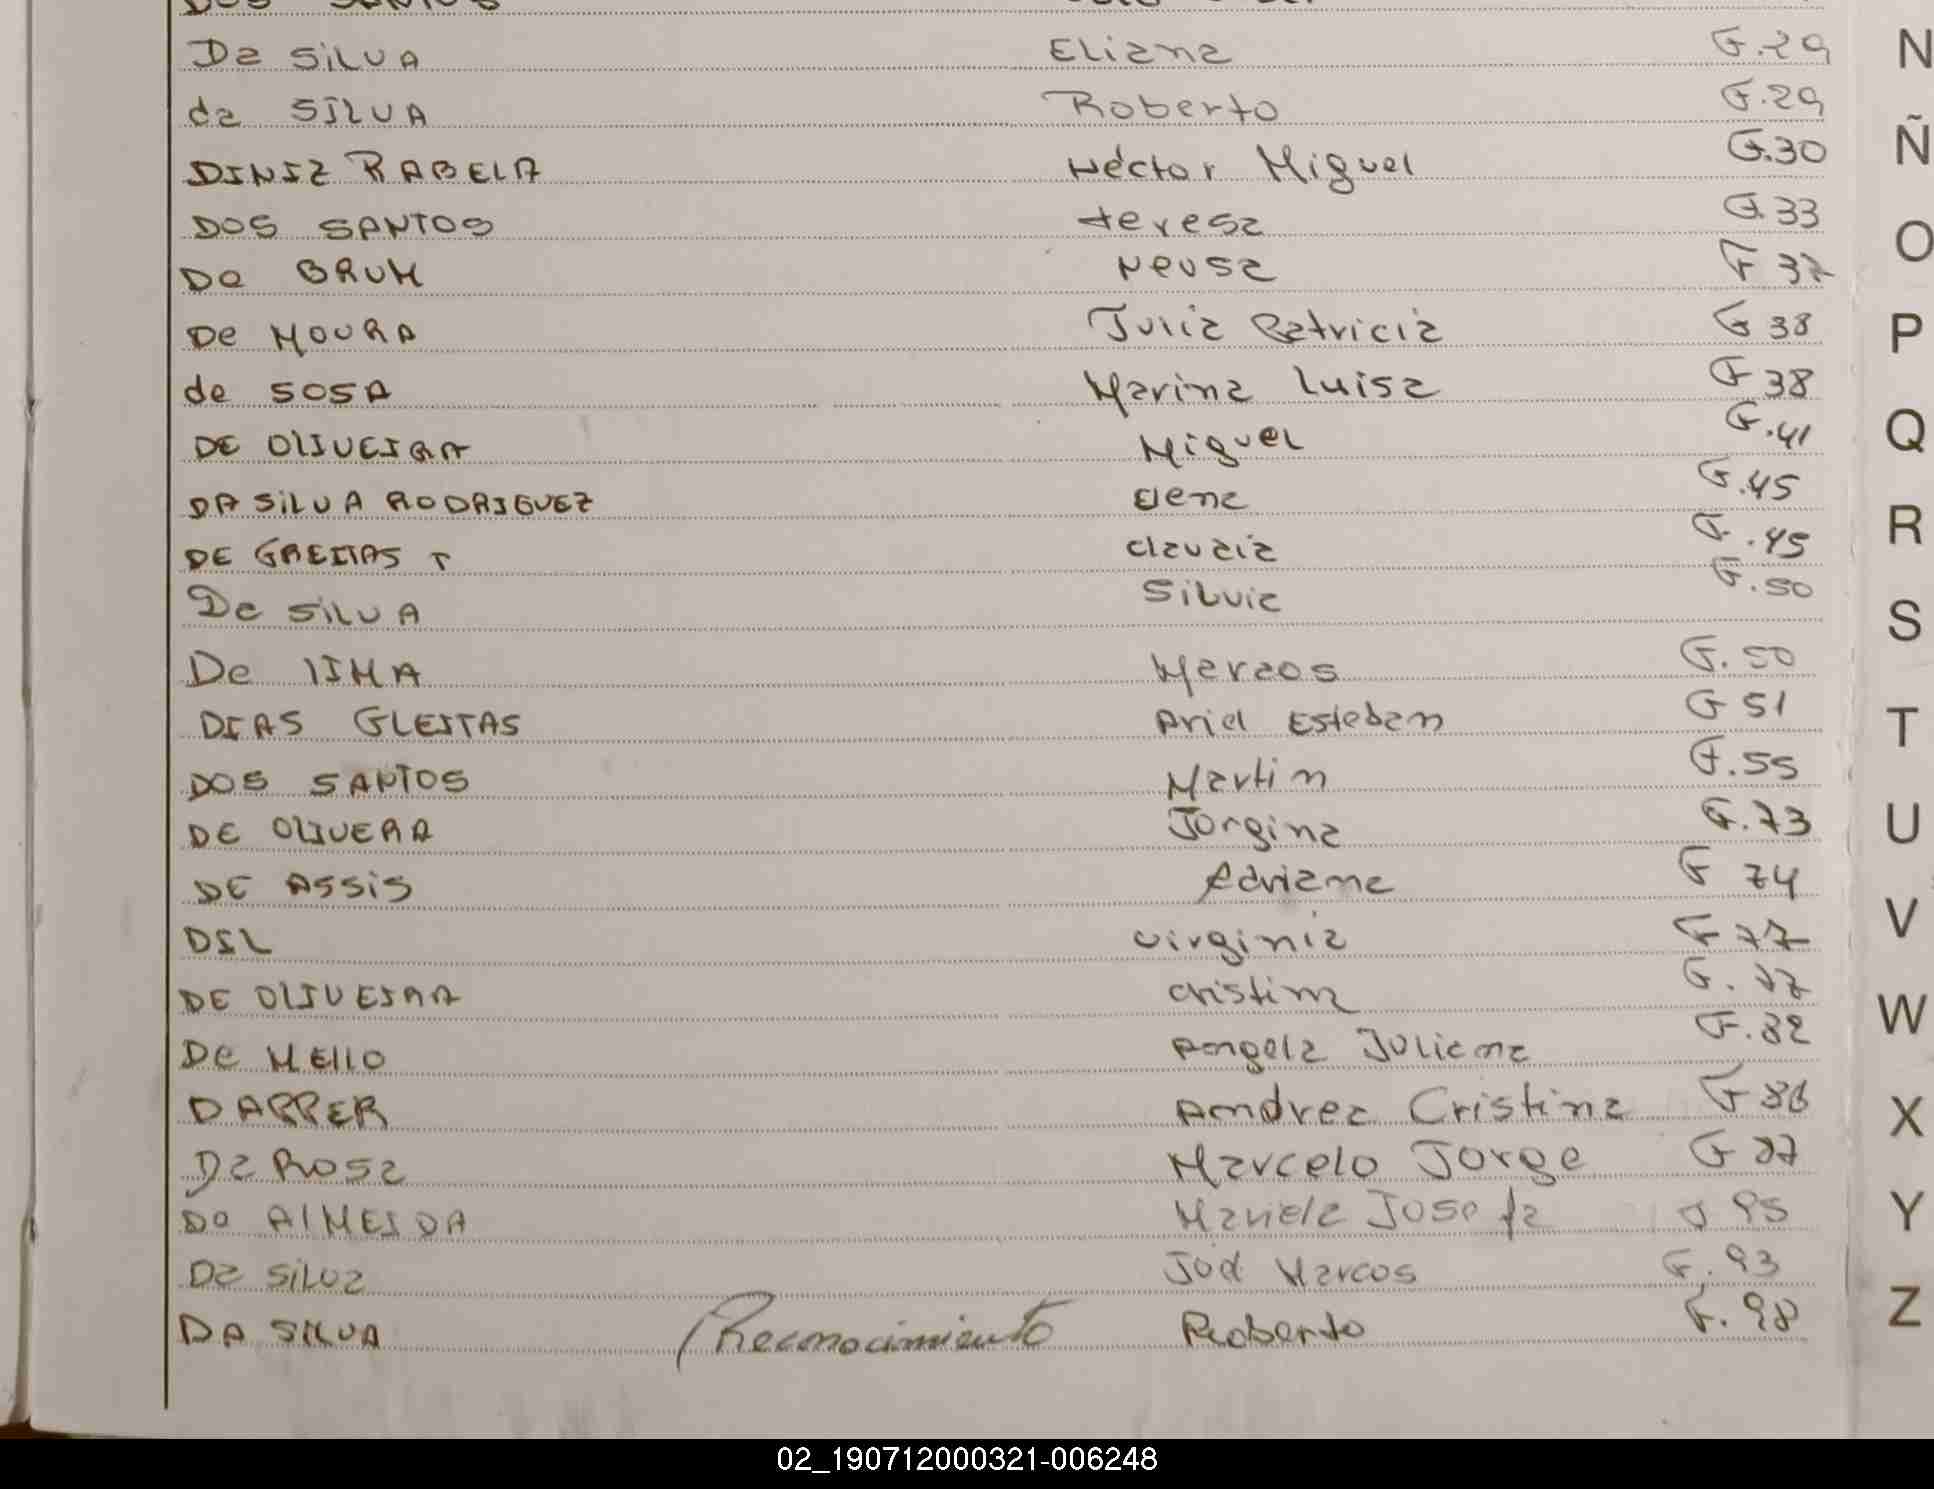 Da SILVA Eliana G.29
da SILVA Roberto G.29
DINIZ RABELA Héctor Miguel G.30
DOS SANTOS teresa G.33
De BRUM Neusa F 37
De MOURA Julia Patricia G 38
de SOSA Marina Luisa F 38
DE OLIVEIRA Miguel G.41
DA SILVA RODRIGUEZ Elena G.45
DE T Claudia F.45
Da SILVA Silvia G.50
De LIMA Marcos G.50
DIAS GLEITAS Ariel Esteban G 51
DOS SANTOS Martin F.55
DE OLIVERA Jorgina G.73
DE ASSIS Adriana F 74
DIL Virginia F 77
DE OLIVEIRA Cristina G.77
De MELLO Angela Juliana F.82
DAPPER Andrea Cristina F 86
Da Rosa Marcelo Jorge G 87
De ALMEIDA Mariela Josefa 95
Da Silva José Marcos G.93
DA SILVA (Reconocimiento Roberto F.98
N
Ñ
O
P
Q
R
S
T
U
V
W
X
Y
Z
02_190712000321-006248